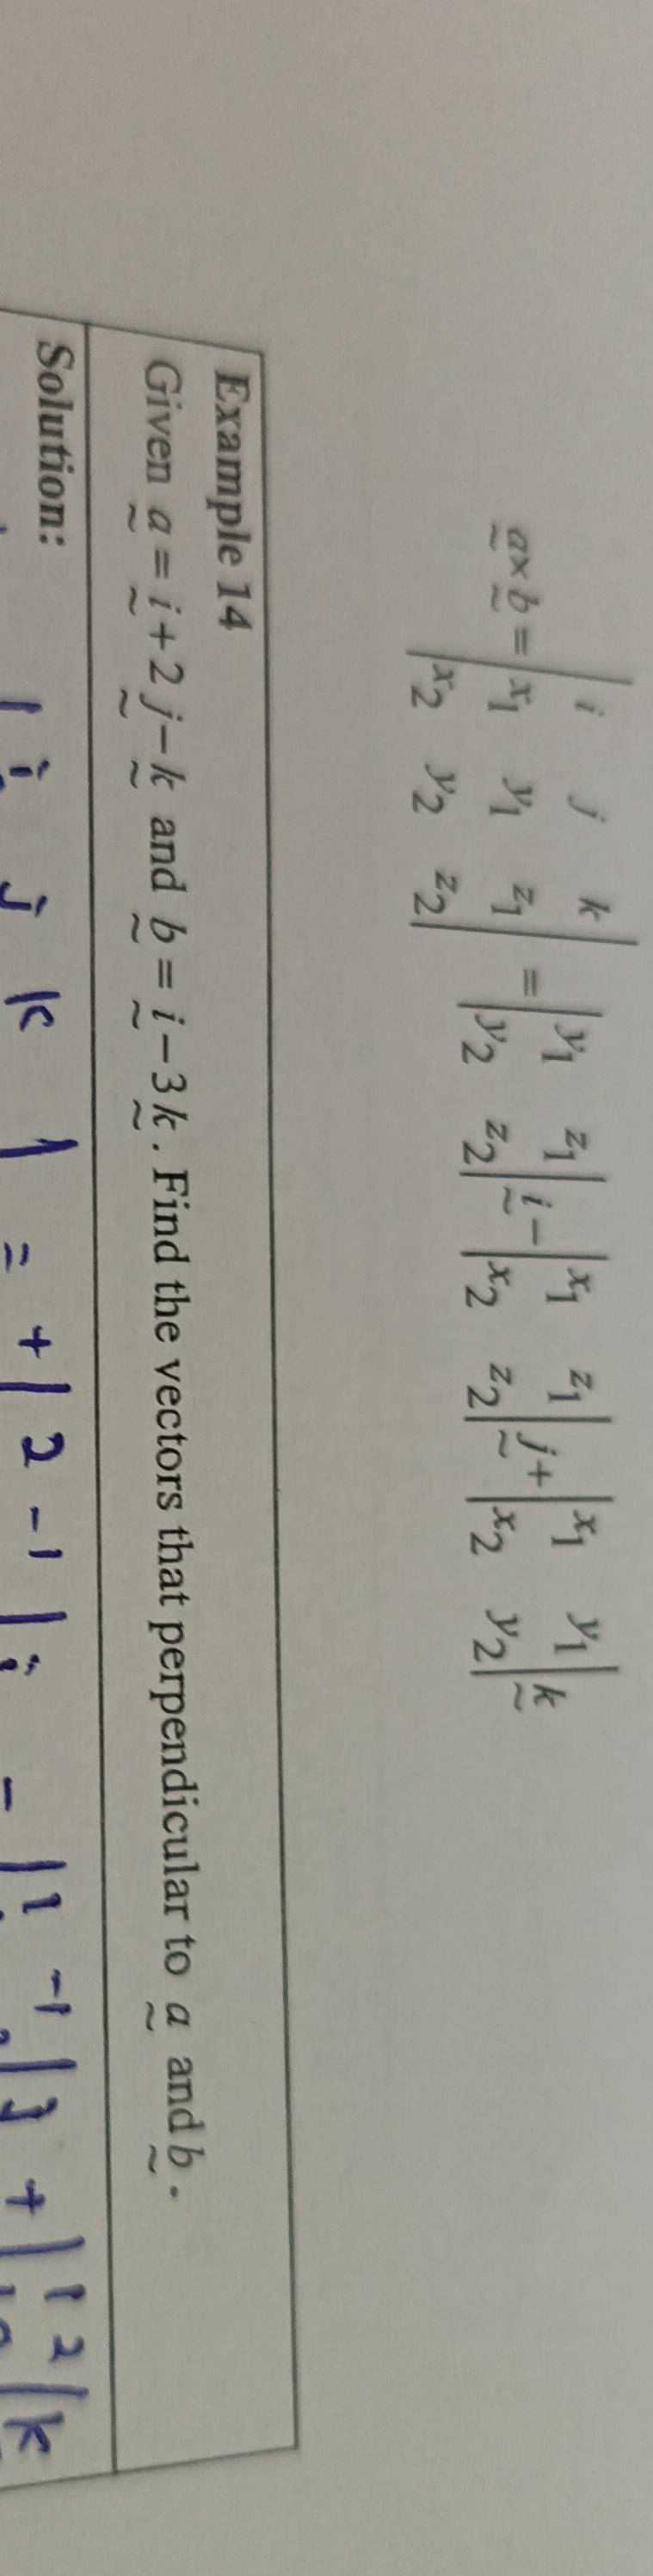 a × b = | i j k | = | y₁ z₁ | i − | x₁ z₁ | j + | x₁ y₁ | k
| x₁ y₁ z₁ | | y₂ z₂ | | x₂ z₂ | | x₂ y₂ |
| x₂ y₂ z₂ |
Example 14
Given a = i + 2 j − k and b = i − 3 k . Find the vectors that perpendicular to a and b .
Solution:
| i j k | = + | 2 -1 | i - | 1 -1 | j + | 1 2 | k